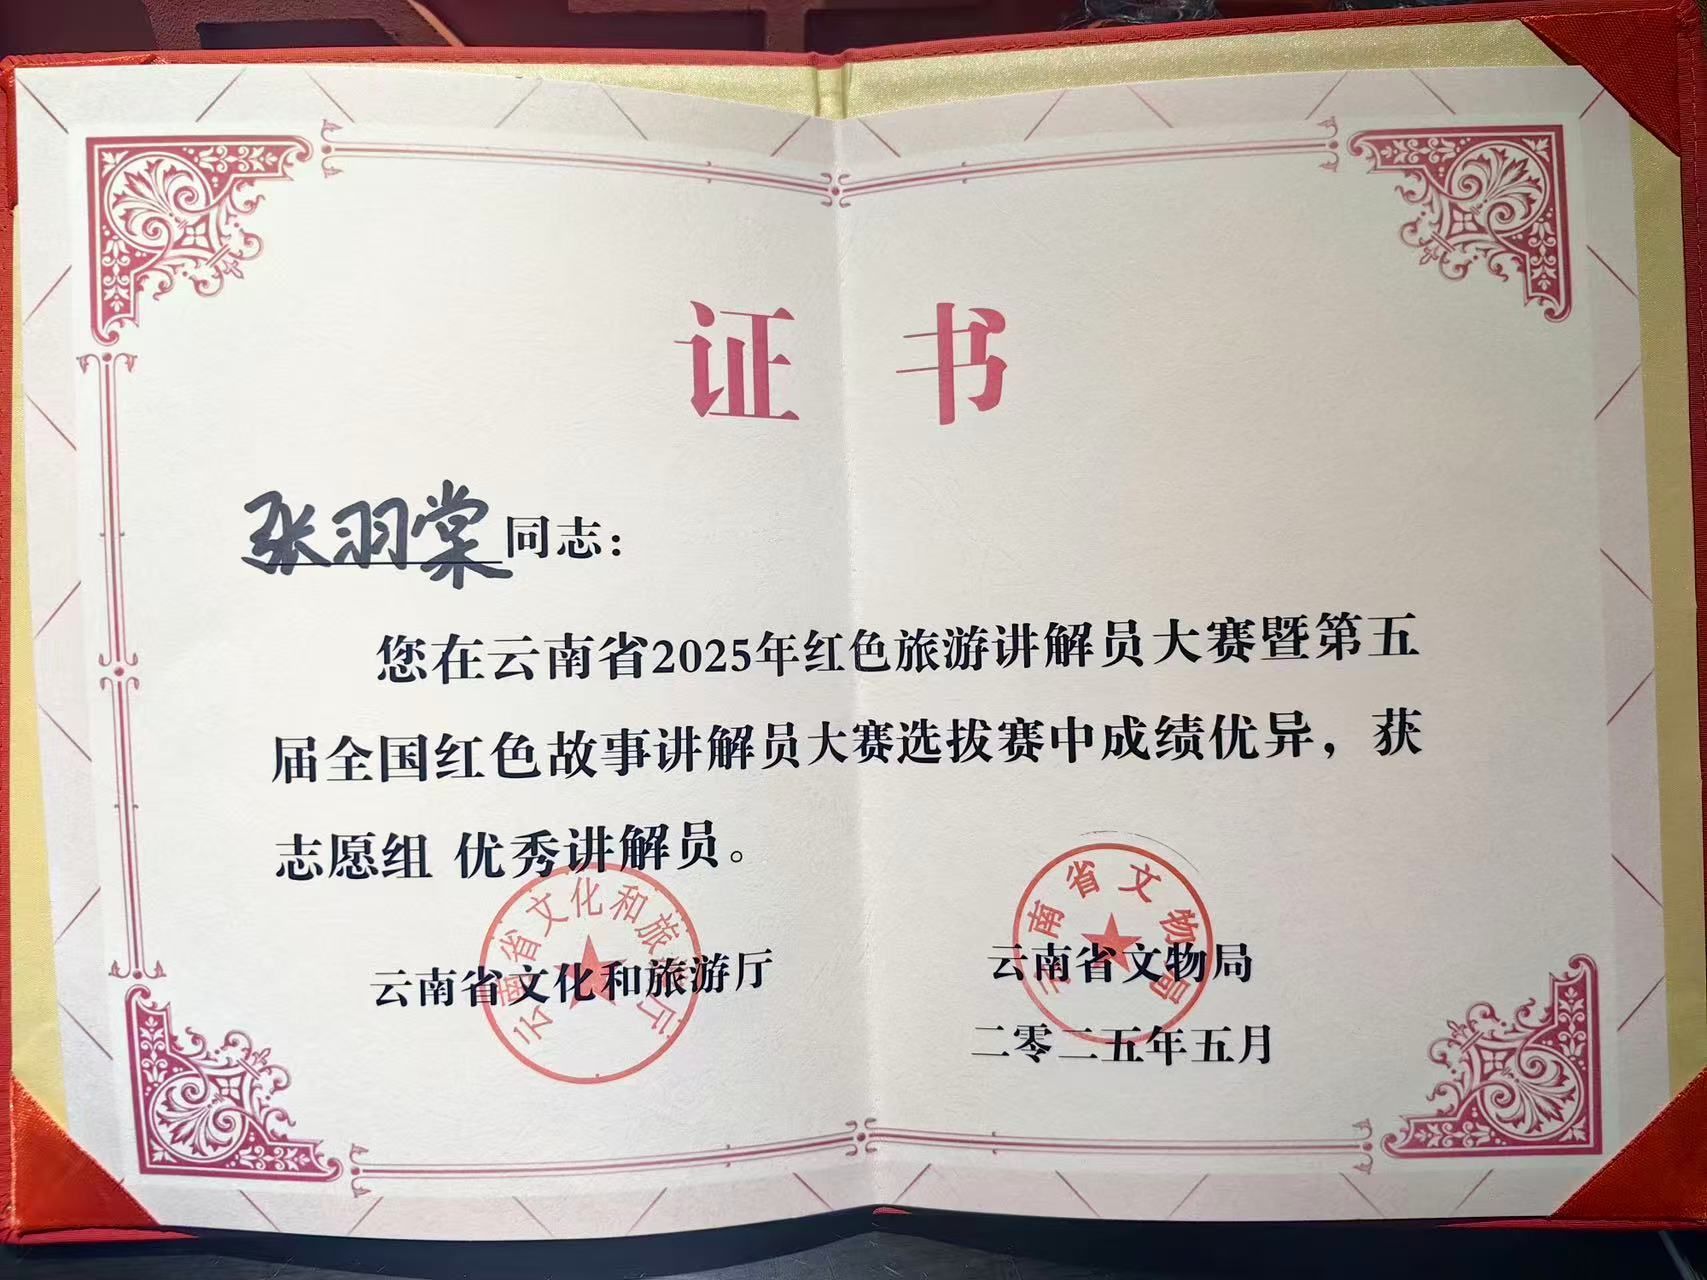 证书
张羽棠同志：
您在云南省2025年红色旅游讲解员大赛暨第五
届全国红色故事讲解员大赛选拔赛中成绩优异，获
志愿组 优秀讲解员。
云南省文化和旅游厅
云南省文物局
二零二五年五月
云南省文化和旅游厅
云南省文物局